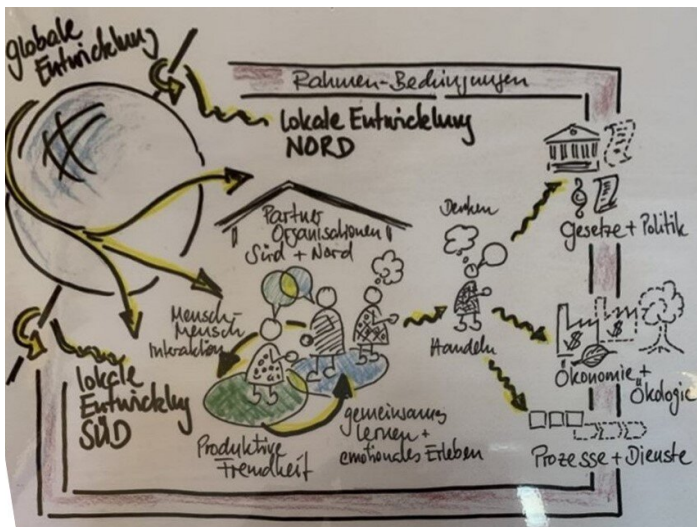 globale
Entwicklung
Rahmen-Bedingungen
lokale Entwicklung
NORD
Partner
Organisationen
Süd + Nord
Denken
Gesetze + Politik
Mensch-
Mensch
Interaktion
Handeln
$ $
Ökonomie +
Ökologie
lokale
Entwicklg
SÜD
Produktive
Fremdheit
gemeinsames
lernen +
emotionales Erleben
Prozesse + Dienste